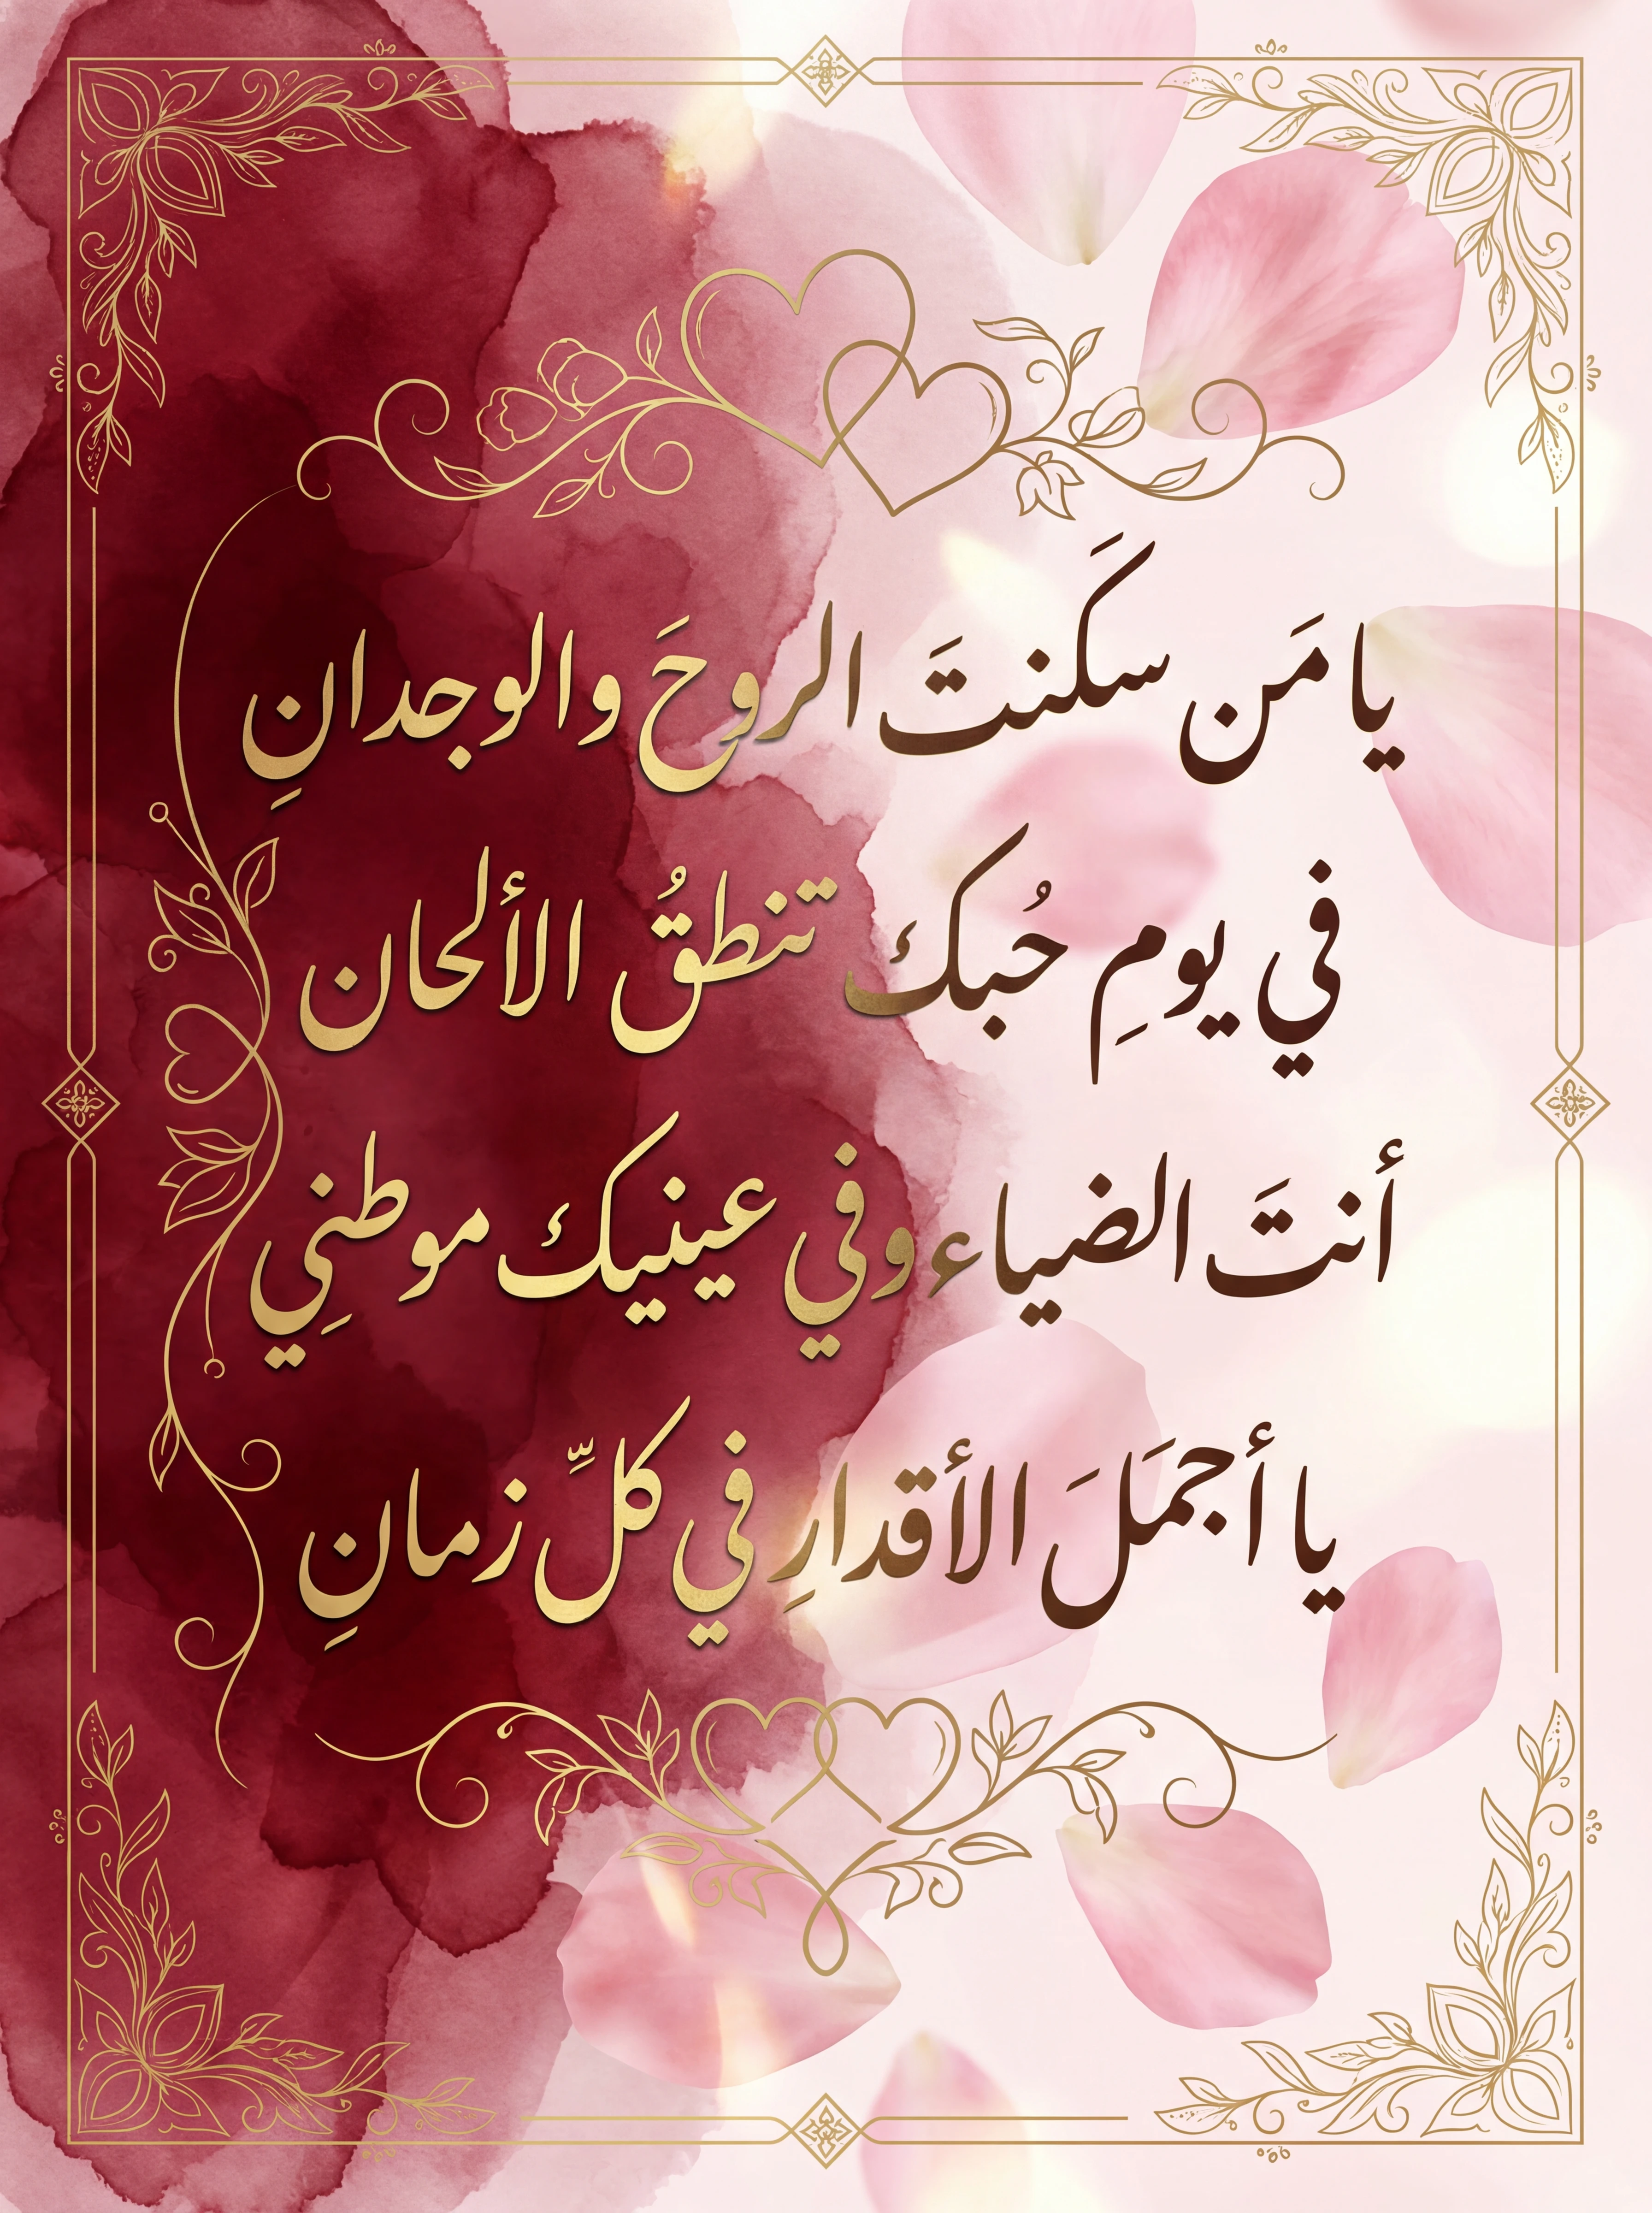 يا مَن سكَنتَ الروحَ والوجدانِ
في يومِ حُبك تنطقُ الألحان
أنتَ الضياء وفي عينيك موطنِي
يا أجمَلَ الأقدارِ في كلِّ زمانِ